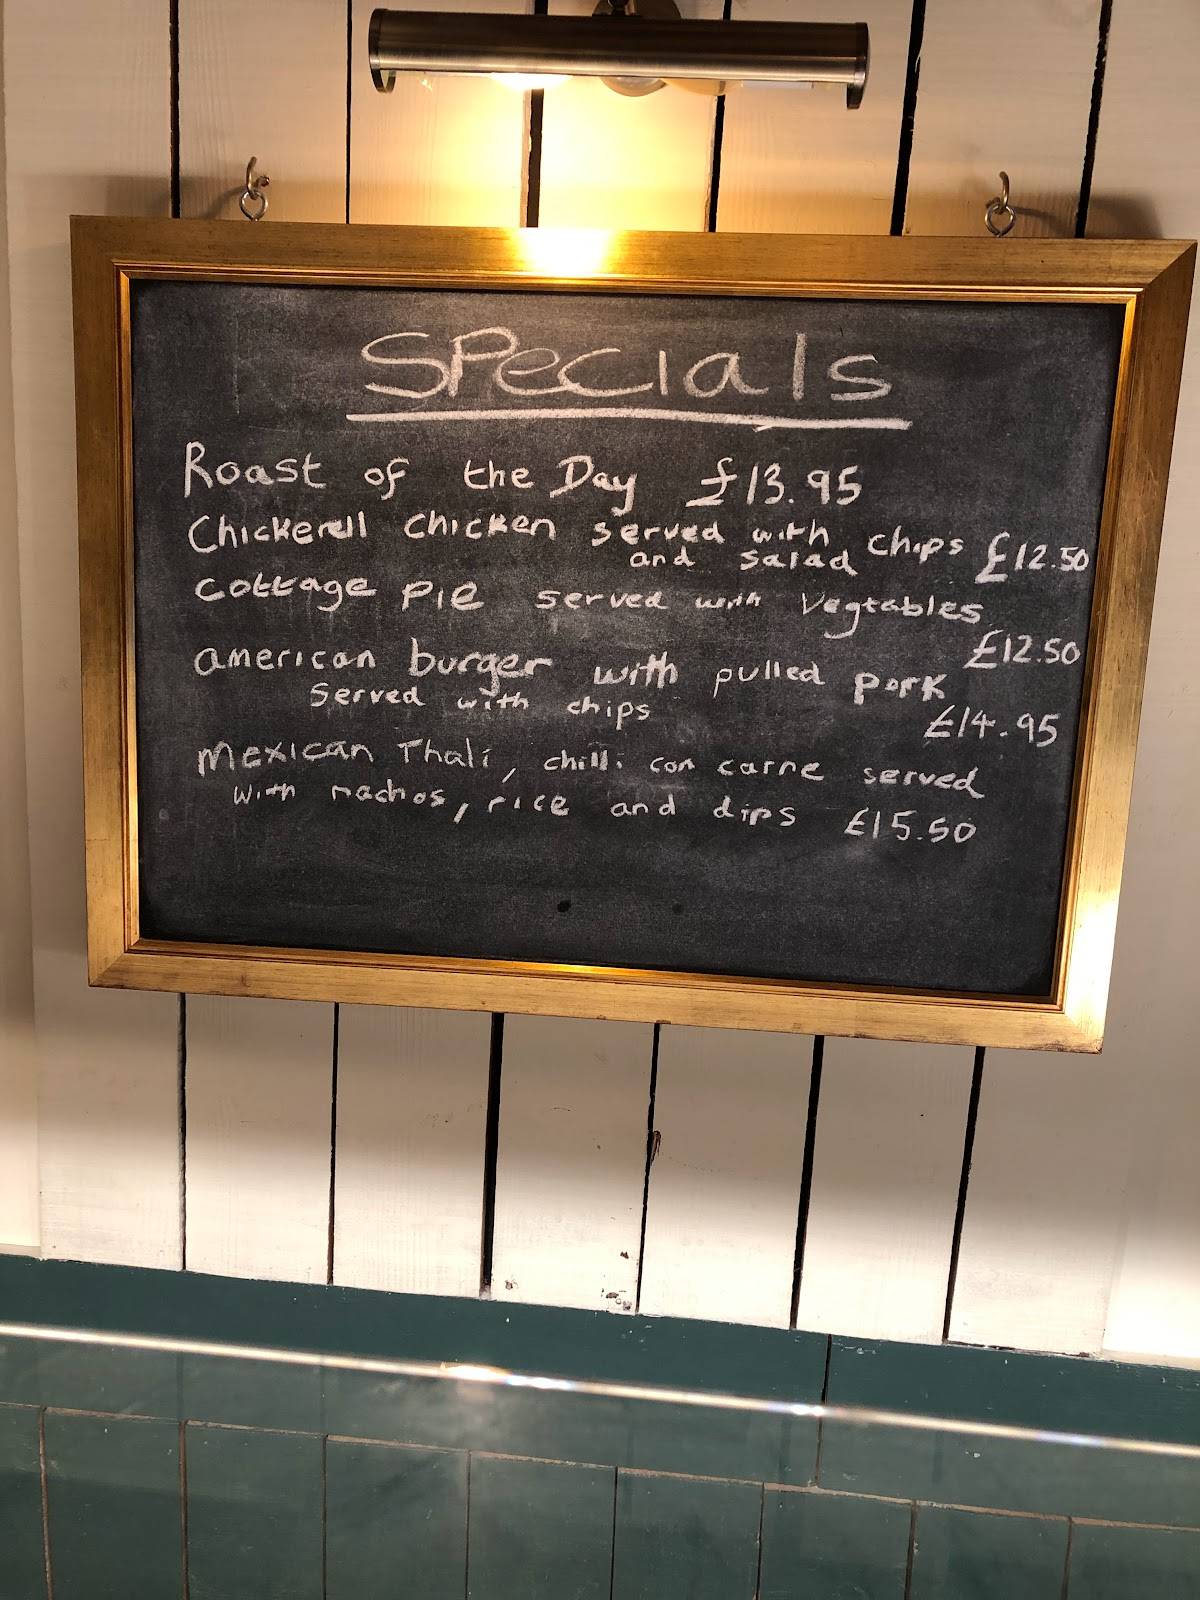 Specials
Roast of the Day £13.95
Chickerell chicken served with chips £12.50
and salad
cottage pie served with Vegtables
£12.50
american burger with pulled pork
Served with chips £14.95
Mexican Thali, chilli con carne served
with nachos, rice and dips £15.50